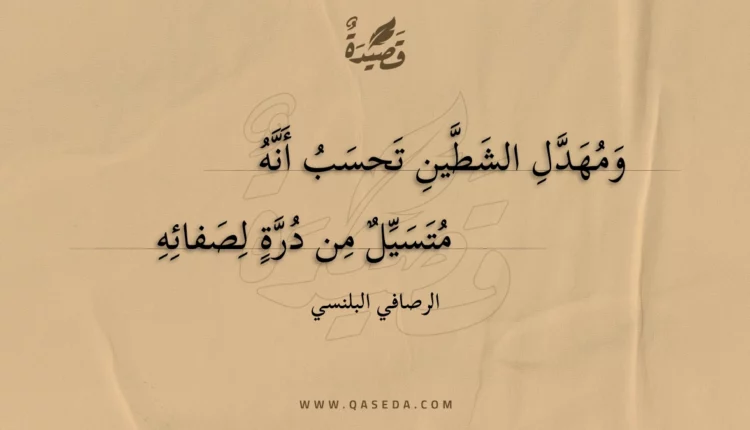 قَصِيدَةٌ
وَمُهَدَّلِ الشَطَّينِ تَحسَبُ أَنَّهُ
مُتَسَيِّلٌ مِن دُرَّةٍ لِصَفائِهِ
الرصافي البلنسي
WWW.QASEDA.COM